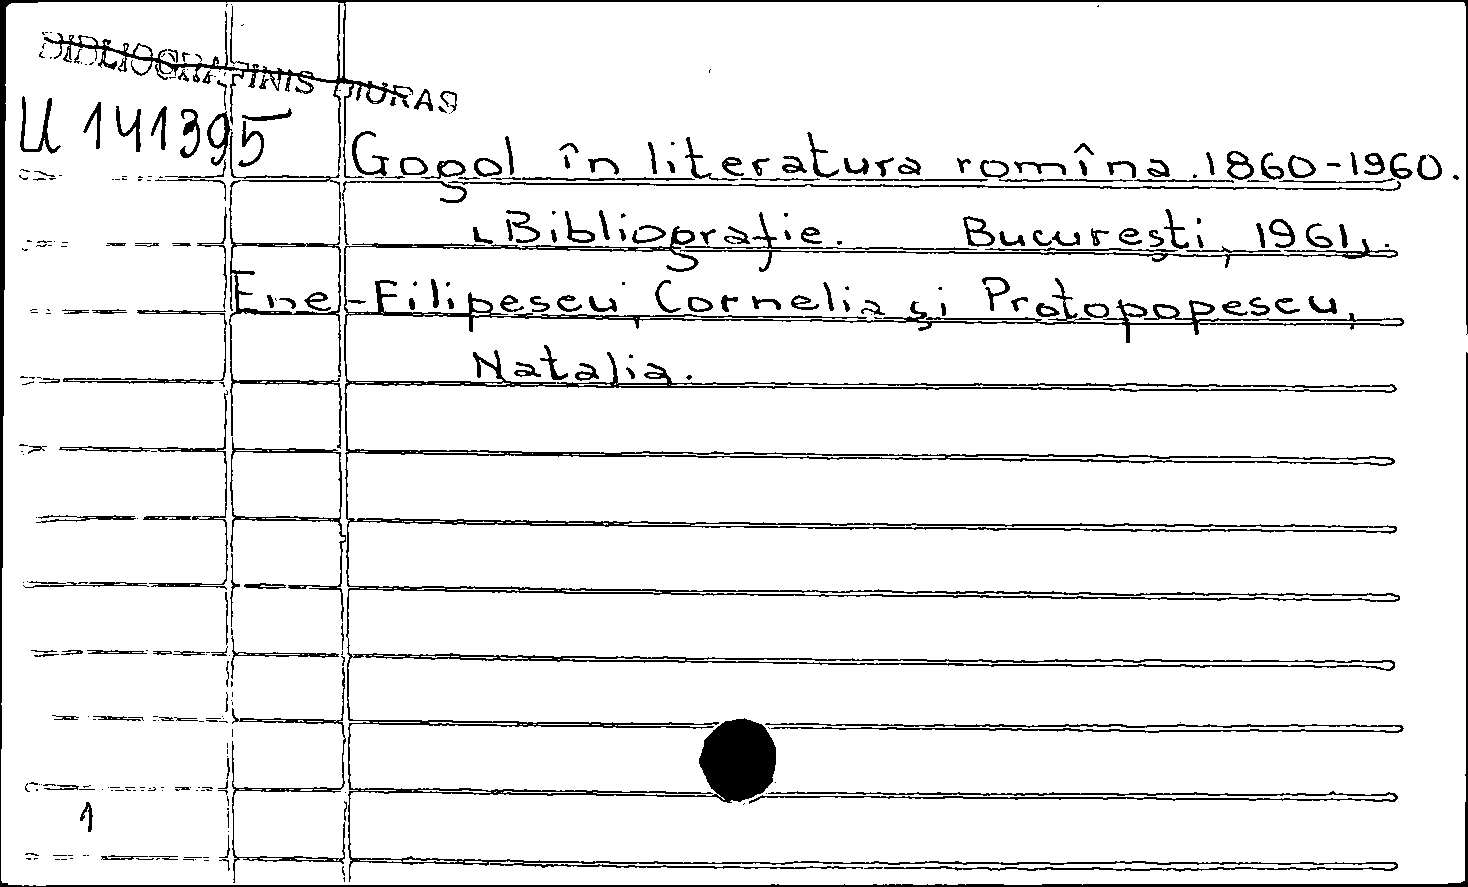 BIBLIOGRAFINIS BIURAS
U 141395
Gogol în literatura romîna. 1860-1960.
Bibliografie. București, 1961.
Ene-Filipescu, Cornelia și Protopopescu,
Natalia.
1